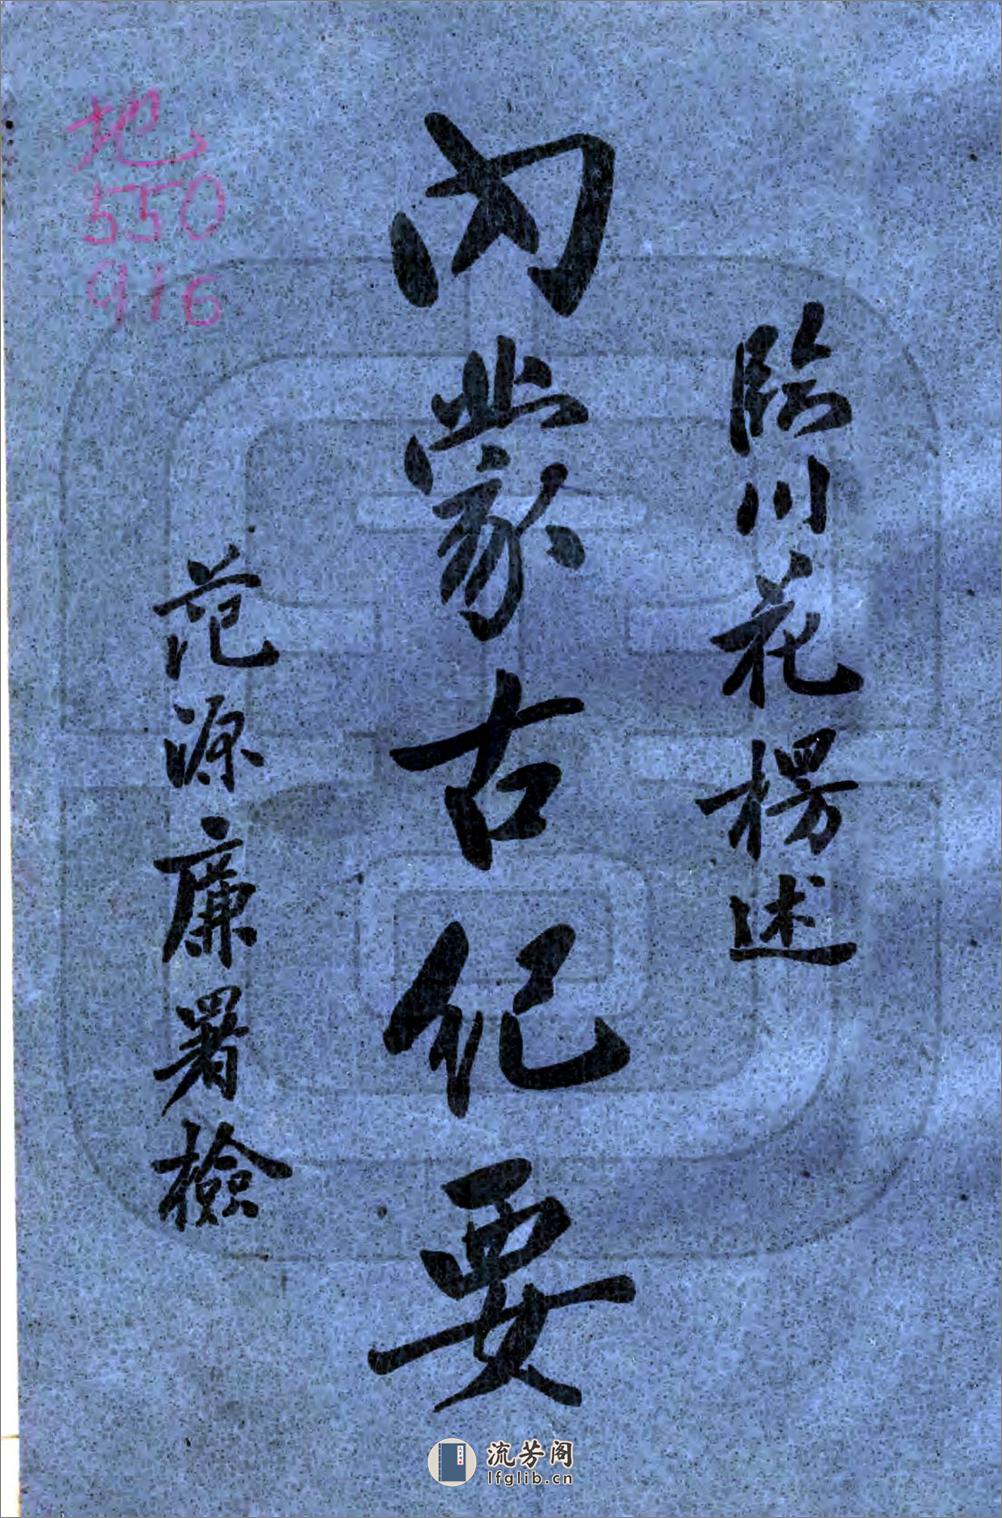 臨川花楞述
內蒙古纪要
范源廉署檢
地
550
916
流芳阁
lfglib.cn